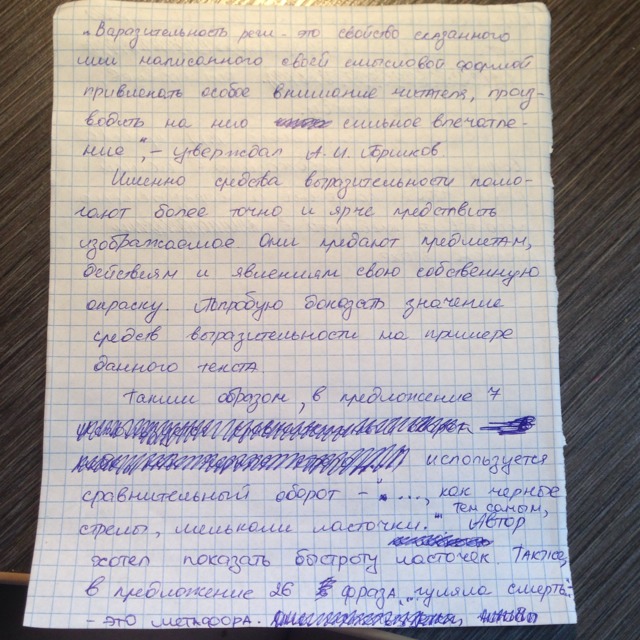 „Варазительность речи - это свойство сказанного
или написанного своей смысловой формой
привлекать особое внимание читателя, произ-
водить на него сильное впечатле-
ние", - утверждал А. И. Горшков.
Именно средства выразительности помо-
гают более точно и ярче предствить
изображаемое. Они предают предметам,
действиям и явлениям свою собственную
окраску. Попробую доказать значение
средств выразительности на примере
данного текста.
Таким образом, в предложение 7
используется
сравнительный оборот - „..., как черные
стрелы, мелькали ласточки." Тем самым, Автор
хотел показать быстроту ласточек. Также,
в предложение 26 фраза „гуляла смерть"
- это метафора.